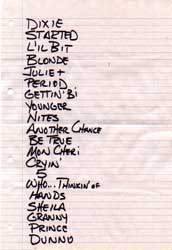 DIXIE
STARTED
L'IL BIT
BLONDE
JULIET
PERIOD
GETTIN' BI'
YOUNGER
NITES
ANOTHER CHANCE
BE TRUE
MON CHERI
CRYIN'
5
WHO... THINKIN' OF
HANDS
SHEILA
GRANNY
PRINCE
DUNNO